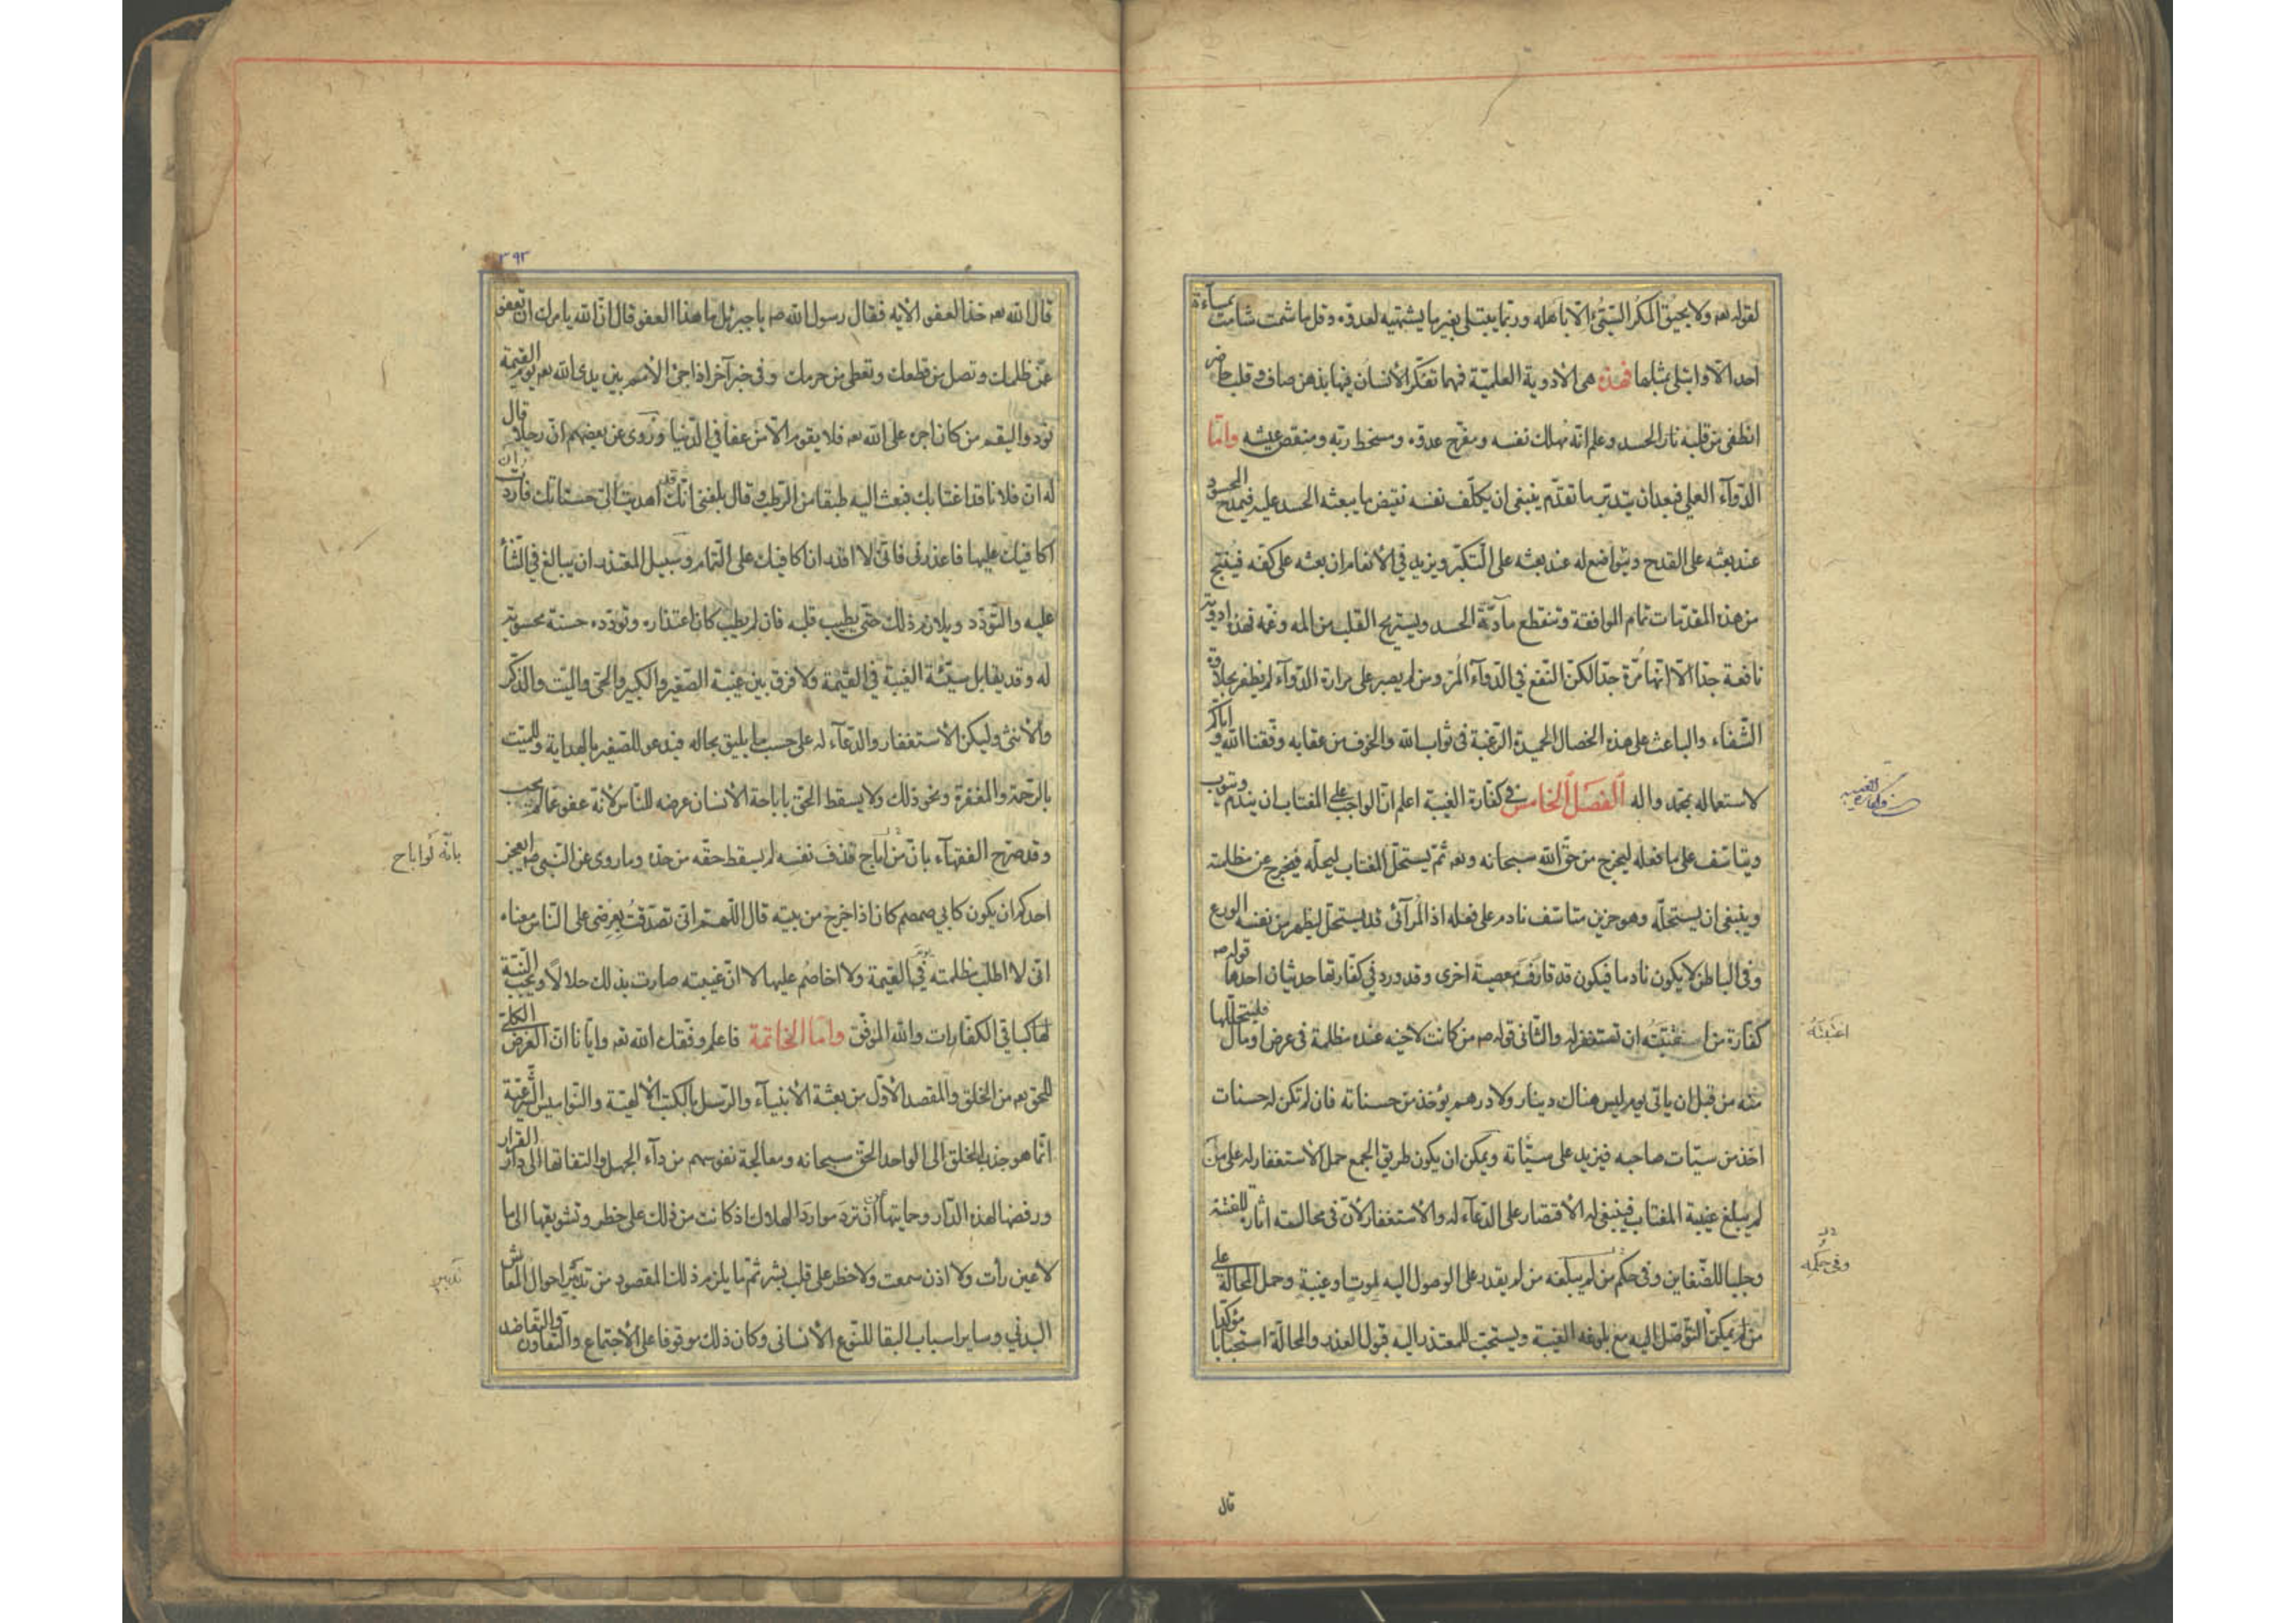 لقوله تعه ولا يحيق المكر السّيّئ الّا باهله وربّما يبتلى بغير ما يشتهيه لعدوّه وقل ما شمت شامت بمساءة
احد الّا وابتلى بمثلها فهذه هى الادوية العلميّة فمهما تفكّر الانسان فيها بذهن صاف وقلب حاضر
انطفى من قلبه نار الحسد وعلم انّه مهلك نفسه ومفرح عدوّه ومسخط ربّه ومنغص عيشه وامّا
الدّوآء العملى فبعد ان يتدبّر ما تقدّم ينبغى ان يكلّف نفسه نقيض ما يبعثه الحسد عليه فيمدح المحسود
عند بعثه على القدح ويتواضع له عند بعثه على التّكبّر ويزيد فى الانعام ان بعثه على كفّه فينتج
من هذه المقدّمات تمام الموافقة وتنقطع مآدّة الحسد ويستريح القلب من المه وغمّه فهذه ادوية
نافعة جدّا الّا انّها مُرّة جدّا لكنّ النّفع فى الدّوآء المُرّ ومن لم يصبر على مرارة الدّوآء لم يظفر بحلاوة
الشّفاء والباعث على هذه الخصال الحميدة الرّغبة فى ثواب الله والخوف من عقابه وفّقنا الله وايّاكم
لاستعماله بمحمّد واله الفصل الخامس فى كفّارة الغيبة اعلم انّ الواجب على المغتاب ان يندم ويتوب
ويتاسّف على ما فعله ليخرج من حقّ الله سبحانه وتعه ثمّ يستحلّ المغتاب ليحلّه فيخرج عن مظلمته
وينبغى ان يستحلّه وهو حزين متاسّف نادم على فعله اذ المُرآئى قد يستحلّ ليظهر من نفسه الورع
وفى الباطن لا يكون نادما فيكون قد قارف معصية اخرى وقد ورد فى كفّارتها حديثان احدهما قوله صه
كفّارة من استغبته ان تستغفر له والثّانى قوله صه من كانت لاخيه عنده مظلمة فى عرض او مال فليتحلّلها
اغتبته
منه من قبل ان ياتى يوم ليس هناك دينار ولا درهم يؤخذ من حسناته فان لم تكن له حسنات
اخذ من سيّات صاحبه فيزيد على سيّئاته ويمكن ان يكون طريق الجمع حمل الاستغفار له على من
لم يبلغ غيبة المغتاب فينبغى له الاقتصار على الدّعآء له والاستغفار لانّ فى محالّته اثارة للفتنة
وجلبا للضّغاين وفى حكم من لم يبلغه من لم يقدر على الوصول اليه لموت او غيبة وحمل المحالّة على
وفى حكمه
من لم يمكن التّوصّل اليه مع بلوغه الغيبة ويستحبّ للمعتذر اليه قبول العذر والمحالّة استحبابا مؤكّدا
قال
٣٩٣
قال الله تعه خذ العفو الايه فقال رسول الله صه يا جبرئيل ما هذا العفو قال انّ الله يامرك ان تعفو
عمّن ظلمك وتصل من قطعك وتعطى من حرمك وفى خبر آخر اذا جثى الامم بين يدى الله تعه يوم القيمة
نودوا ليقم من كان اجره على الله تعه فلا يقوم الّا من عفا فى الدّنيا وروى عن بعضهم انّ رجلا قال
له انّ فلانا قد اغتابك فبعث اليه طبقا من الرّطب وقال بلغنى انّك قد اهديت الىّ حسناتك فاردت ان
اكافيك عليها فاعذرنى فانّى لا اقدر ان اكافيك على التّمام وسبيل المعتذر ان يبالغ فى الثّنآء
عليه والتّودّد ويلازم ذلك حتّى يطيب قلبه فان لم يطب كان اعتذاره وتودّده حسنة محسوبة
له وقد يقابل سيّئة الغيبة فى القيمة ولا فرق بين غيبة الصّغير والكبير والحىّ والميّت والذّكر
والانثى وليكن الاستغفار والدّعآء له على حسب ما يليق بحاله فيدعو للصّغير بالهداية وللميّت
بالرّحمة والمغفرة ونحو ذلك ولا يسقط الحقّ باباحة الانسان عرضه للنّاس لانّه عفو عمّا لم يجب
وقد صرّح الفقهآء بانّ من اباح قذف نفسه لم يسقط حقّه من حدّه وما روى عن النّبى صه ايعجز
بانّه لو اباح
احدكم ان يكون كابى ضمضم كان اذا خرج من بيته قال اللّهمّ انّى تصدّقتُ بِعِرضى على النّاس معناه
انّى لا اطلب مظلمته فى القيمة ولا اخاصم عليها لا انّ غيبته صارت بذلك حلالًا ويجب النيّة
لها كباقى الكفّارات والله الموفّق وامّا الخاتمة فاعلم وفّقك الله تعه وايّانا انّ الغرض الكلّى
للحق تعه من الخلق والمقصد الاوّل من بعثة الانبيآء والرّسل بالكتب الالهيّة والنّواميس الشّرعيّة
انّما هو جذب الخلق الى الواحد الحقّ سبحانه ومعالجة نفوسهم من دآء الجهل والتفاتها الى دار القرار
ورفضها لهذه الدّار وحمايتها ان ترد موارد الهلاك اذ كانت من ذلك على خطر وتشويقها الى ما
لا عين رأت ولا اذن سمعت ولا خطر على قلب بشر ثمّ ما يلزم ذلك المقصود من تدبير احوال المعاش
تدبير
البدنى وساير اسباب البقا للنّوع الانسانى وكان ذلك موقوفا على الاجتماع والتّعاون والتّعاضد